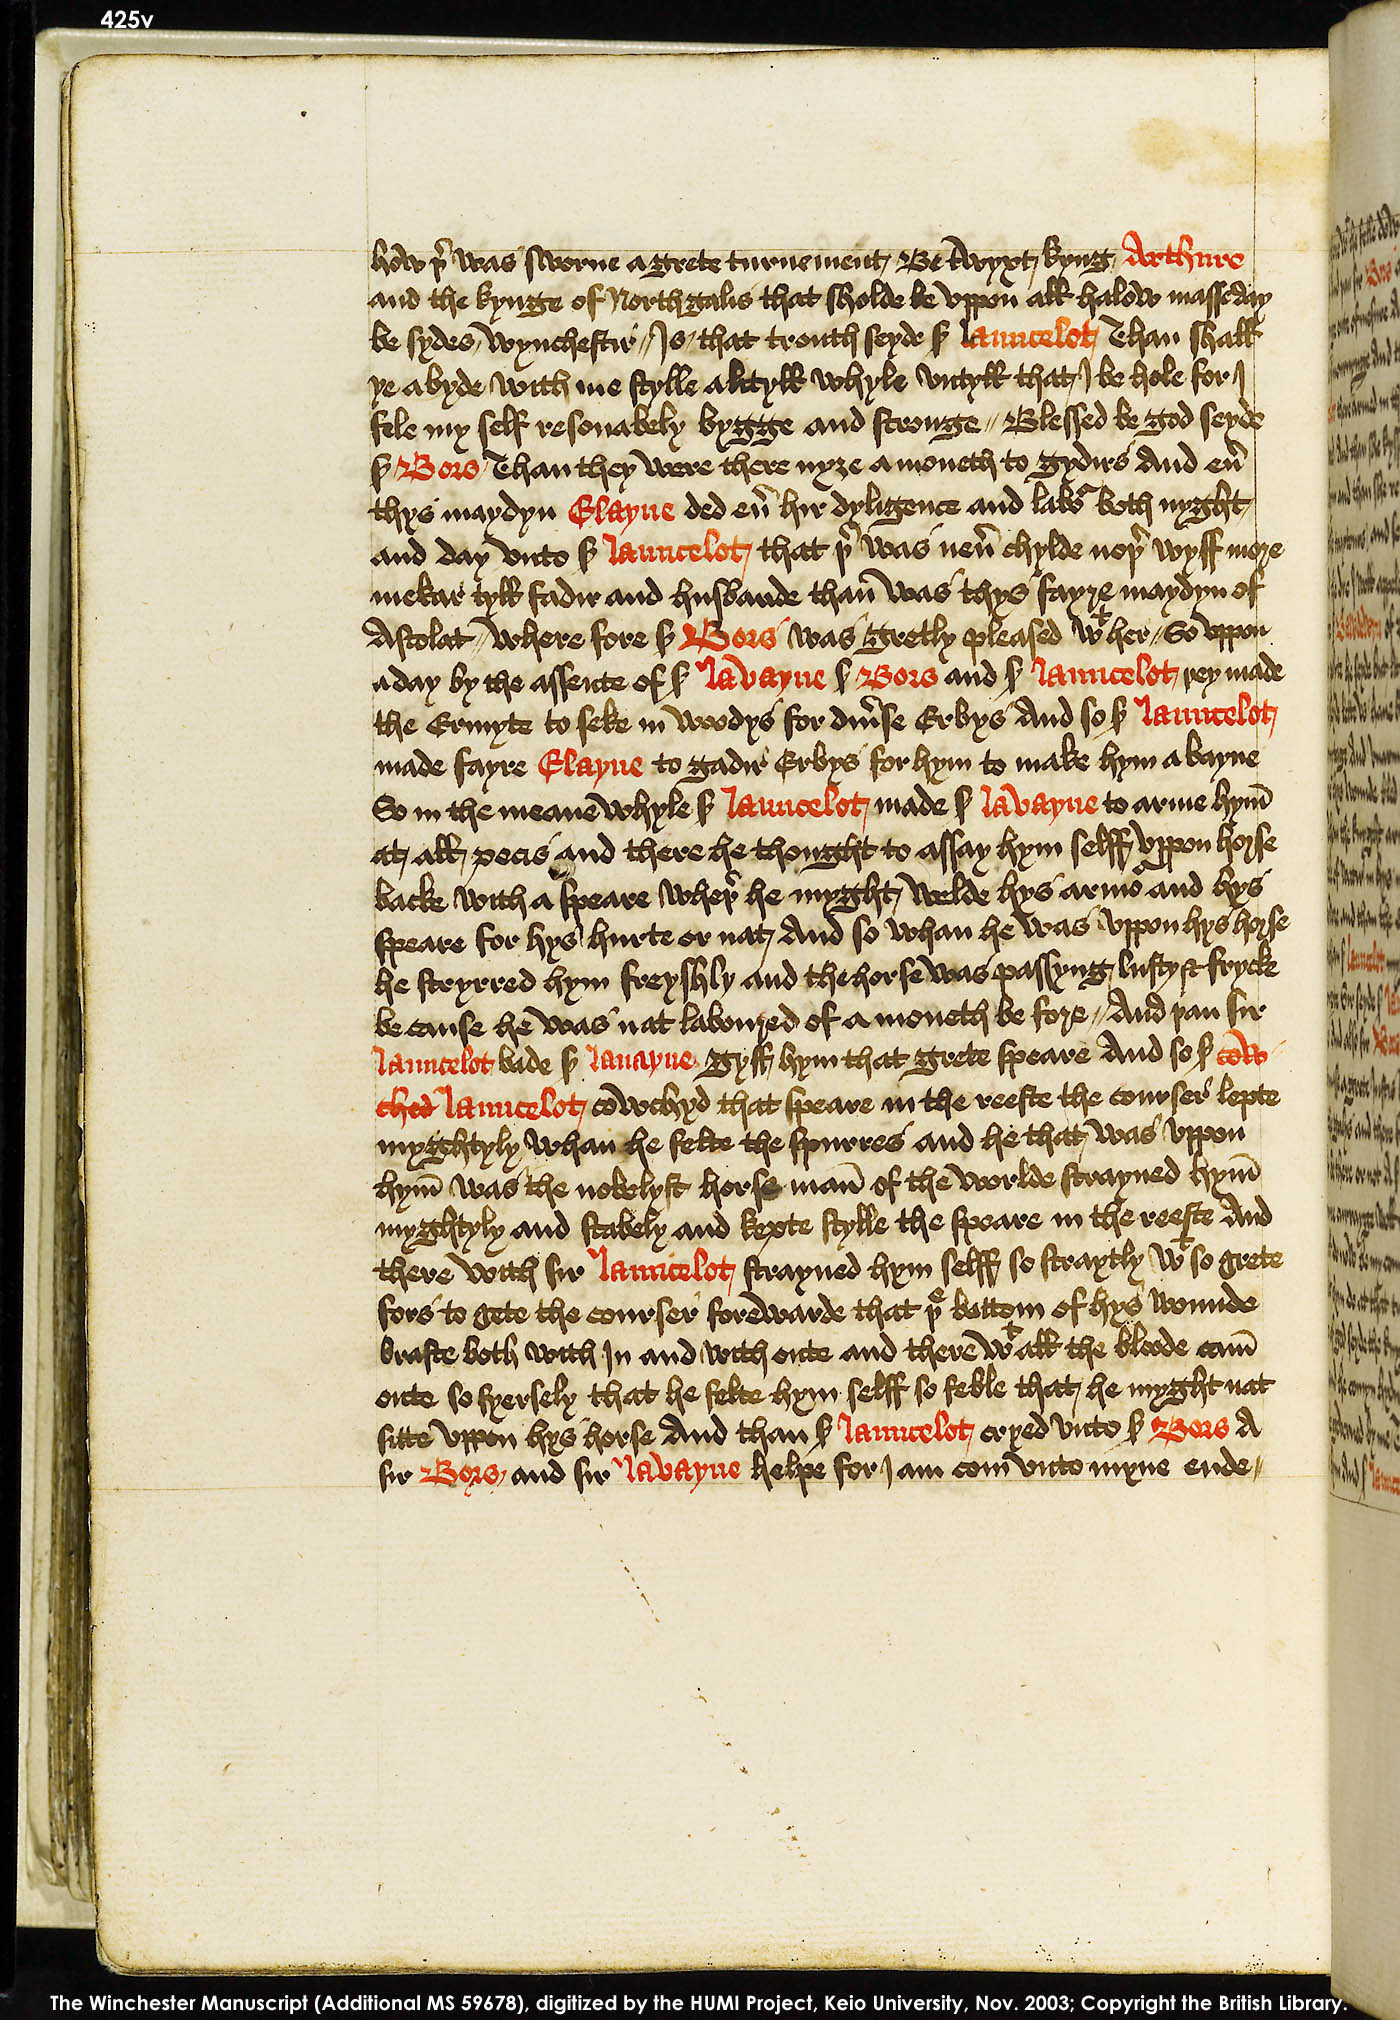 425v
how þr was sworne a grete turnement Be twyxt kyng Arthure
and the kynge of North galis that sholde be vppon all halow masse day
be sydes wynchestir // Is that trouth seyde sr launcelot Than shall
ye a byde with me stylle a lityll whyle vntyll that I be hole for I
fele my self resonabely bygge and stronge // Blessed be god seyde
sr Bors Than they were there nyȝe a moneth to gydirs And eu̅
thys maydyn Elayne ded eu̅ hir dyligence and labor both nyght
and day vnto sr launcelot that þr was neu̅ chylde noþr wyff more
mekar tyll fadir and husbande than̅ was thys fayre maydyn of
Astolat // where fore sr Bors was gretly pleased wt her // So vppon
a day by the assente of sr lavayne sr Bors and sr launcelot þey made
the Ermyte to seke in woodys for diu̅se Erbys And so sr launcelot
made fayre Elayne to gadir Erbys for hym to make hym a bayne
So in the meane whyle sr launcelot made sr lavayne to arme hym̅
at all pecis and there he thought to assay hym selff vppon horse
backe with a speare wheþr he myght welde hys armor and hys
speare for hys hurte or nat And so whan he was vppon hys horse
he stryrred hym freyshly and the horse was passyng lusty & frycke
be cause he was nat laboured of a moneth be fore // And þan sir
launcelot bade sr lauayne gyff hym that grete speare And so sr cow
ched launcelot cowchyd that speare in the reeste the courser lepte
myghtyly whan he felte the spurres and he that was vppon
hym̅ was the nobelyst horse man̅ of the worlde strayned hym̅
myghtyly and stabely and kepte stylle the speare in the reeste And
there with sir launcelot strayned hym selff so straytly wt so grete
fors to gete the courser forewarde that þe bottom of hys wounde
braste both with In and with oute and there wt all the bloode cam̅
oute so fyersely that he felte hym selff so feble that he myght nat
sitte vppon hys horse And than sr launcelot cryed vnto sr Bors A
sir Bors and sir lavayne helpe for I am com vnto myne ende //
The Winchester Manuscript (Additional MS 59678), digitized by the HUMI Project, Keio University, Nov. 2003; Copyright the British Library.